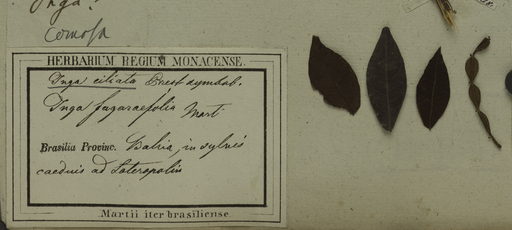 Inga?
comosa
HERBARIUM REGIUM MONACENSE.
Inga ciliata Presl symbol.
Inga fagaraefolia Mart
Brasiliae Provinc. Bahia, in sylvis
caeduis ad Soteropolin
Martii iter brasiliense